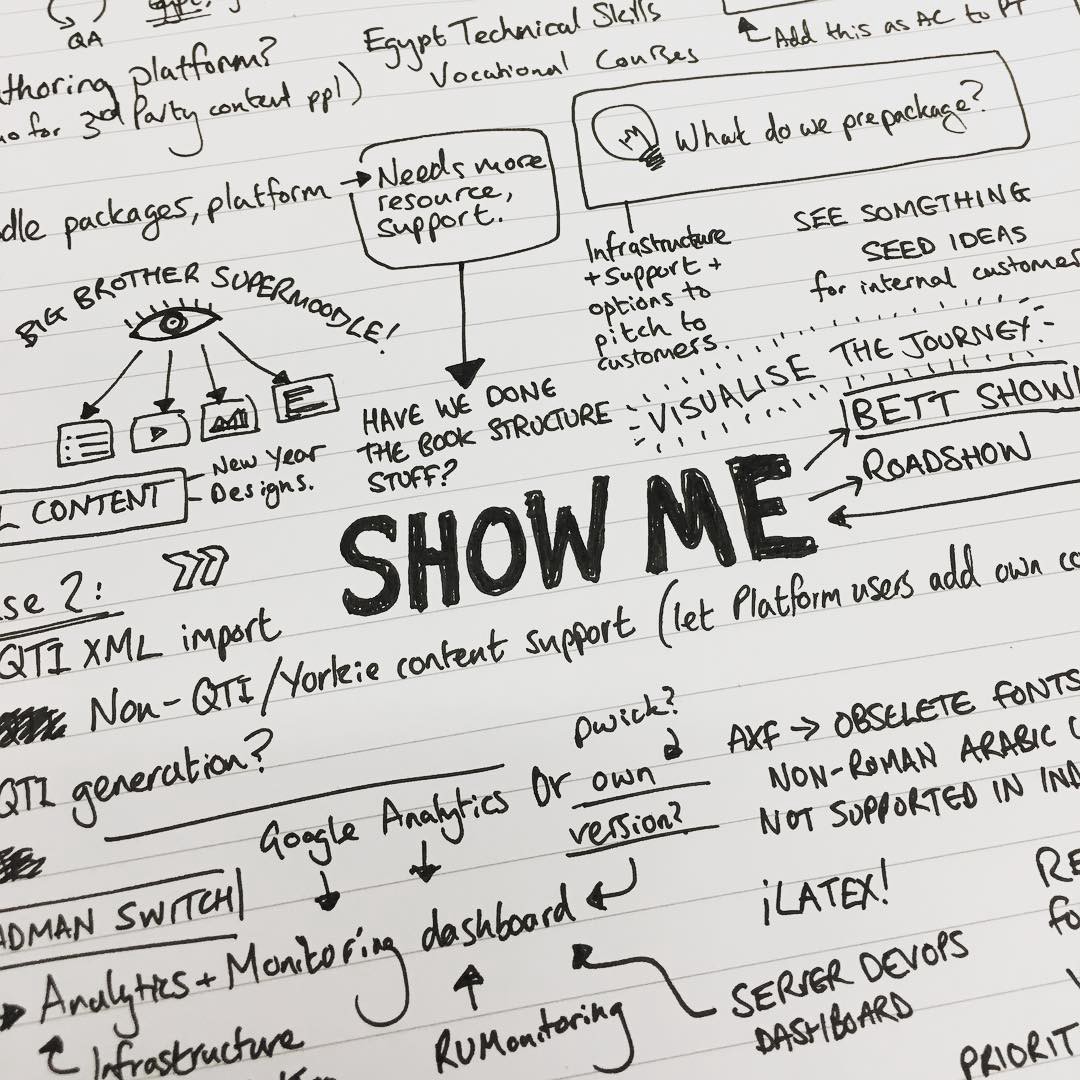 QA
Egypt Technical Skills
Vocational Courses
Add this as AC to PT
thoring platform?
o for 3rd Party content ppl)
What do we prepackage?
dle packages, platform
Needs more
resource,
support.
Infrastructure
+ support +
options to
pitch to
customers.
SEE SOMETHING
SEED IDEAS
for internal customer
BIG BROTHER SUPERMOODLE!
VISUALISE THE JOURNEY.
HAVE WE DONE
THE BOOK STRUCTURE
STUFF?
BETT SHOW
ROADSHOW
L CONTENT
New Year
Designs.
SHOW ME
se 2:
QTI XML import
Non-QTI/Yorkie content support (let Platform users add own co
QTI generation?
Google Analytics or own
version?
pwick?
AXF → OBSELETE FONTS
NON-ROMAN ARABIC
NOT SUPPORTED IN IND
ADMAN SWITCH
Analytics + Monitoring dashboard
¡LATEX!
RE
fo
Infrastructure
RUMonitoring
SERVER DEVOPS
DASHBOARD
PRIORIT